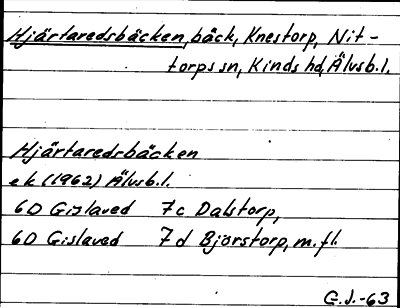 Hjärtaredsbäcken, bäck, Knestorp, Nit-
torps sn, Kinds hd, Älvsb.l.
Hjärtaredsbäcken
ek (1962) Älvsb.l.
6D Gislaved 7c Dalstorp,
6D Gislaved 7d Björstorp, m.fl.
G.J.-63